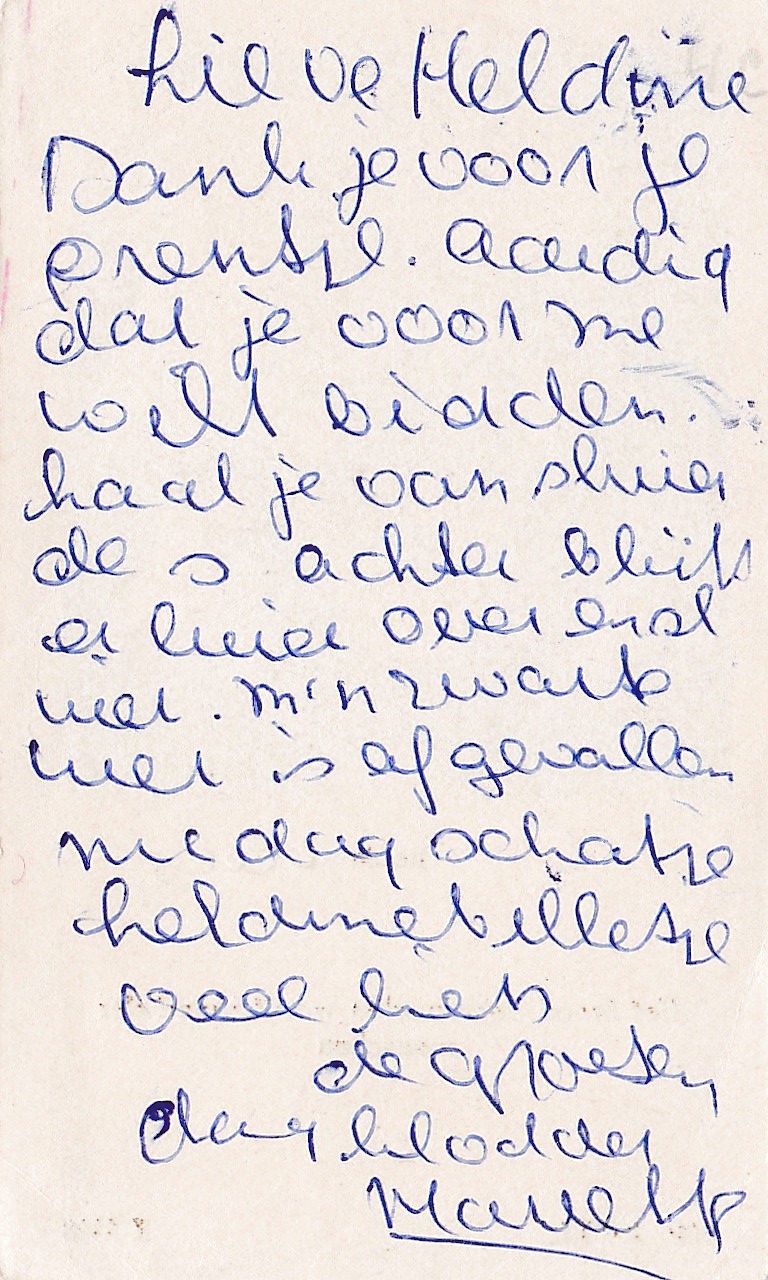 Lieve Heldine
Dank je voor je
prentje. Aardig
dat je voor me
wilt bidden.
haal je van sluier
de s achter blijft
er luier over end
niet. m'n zwarte
is afgevallen
dag schatje
heldinebilletje
veel liefs
de groeten,
dag klodder